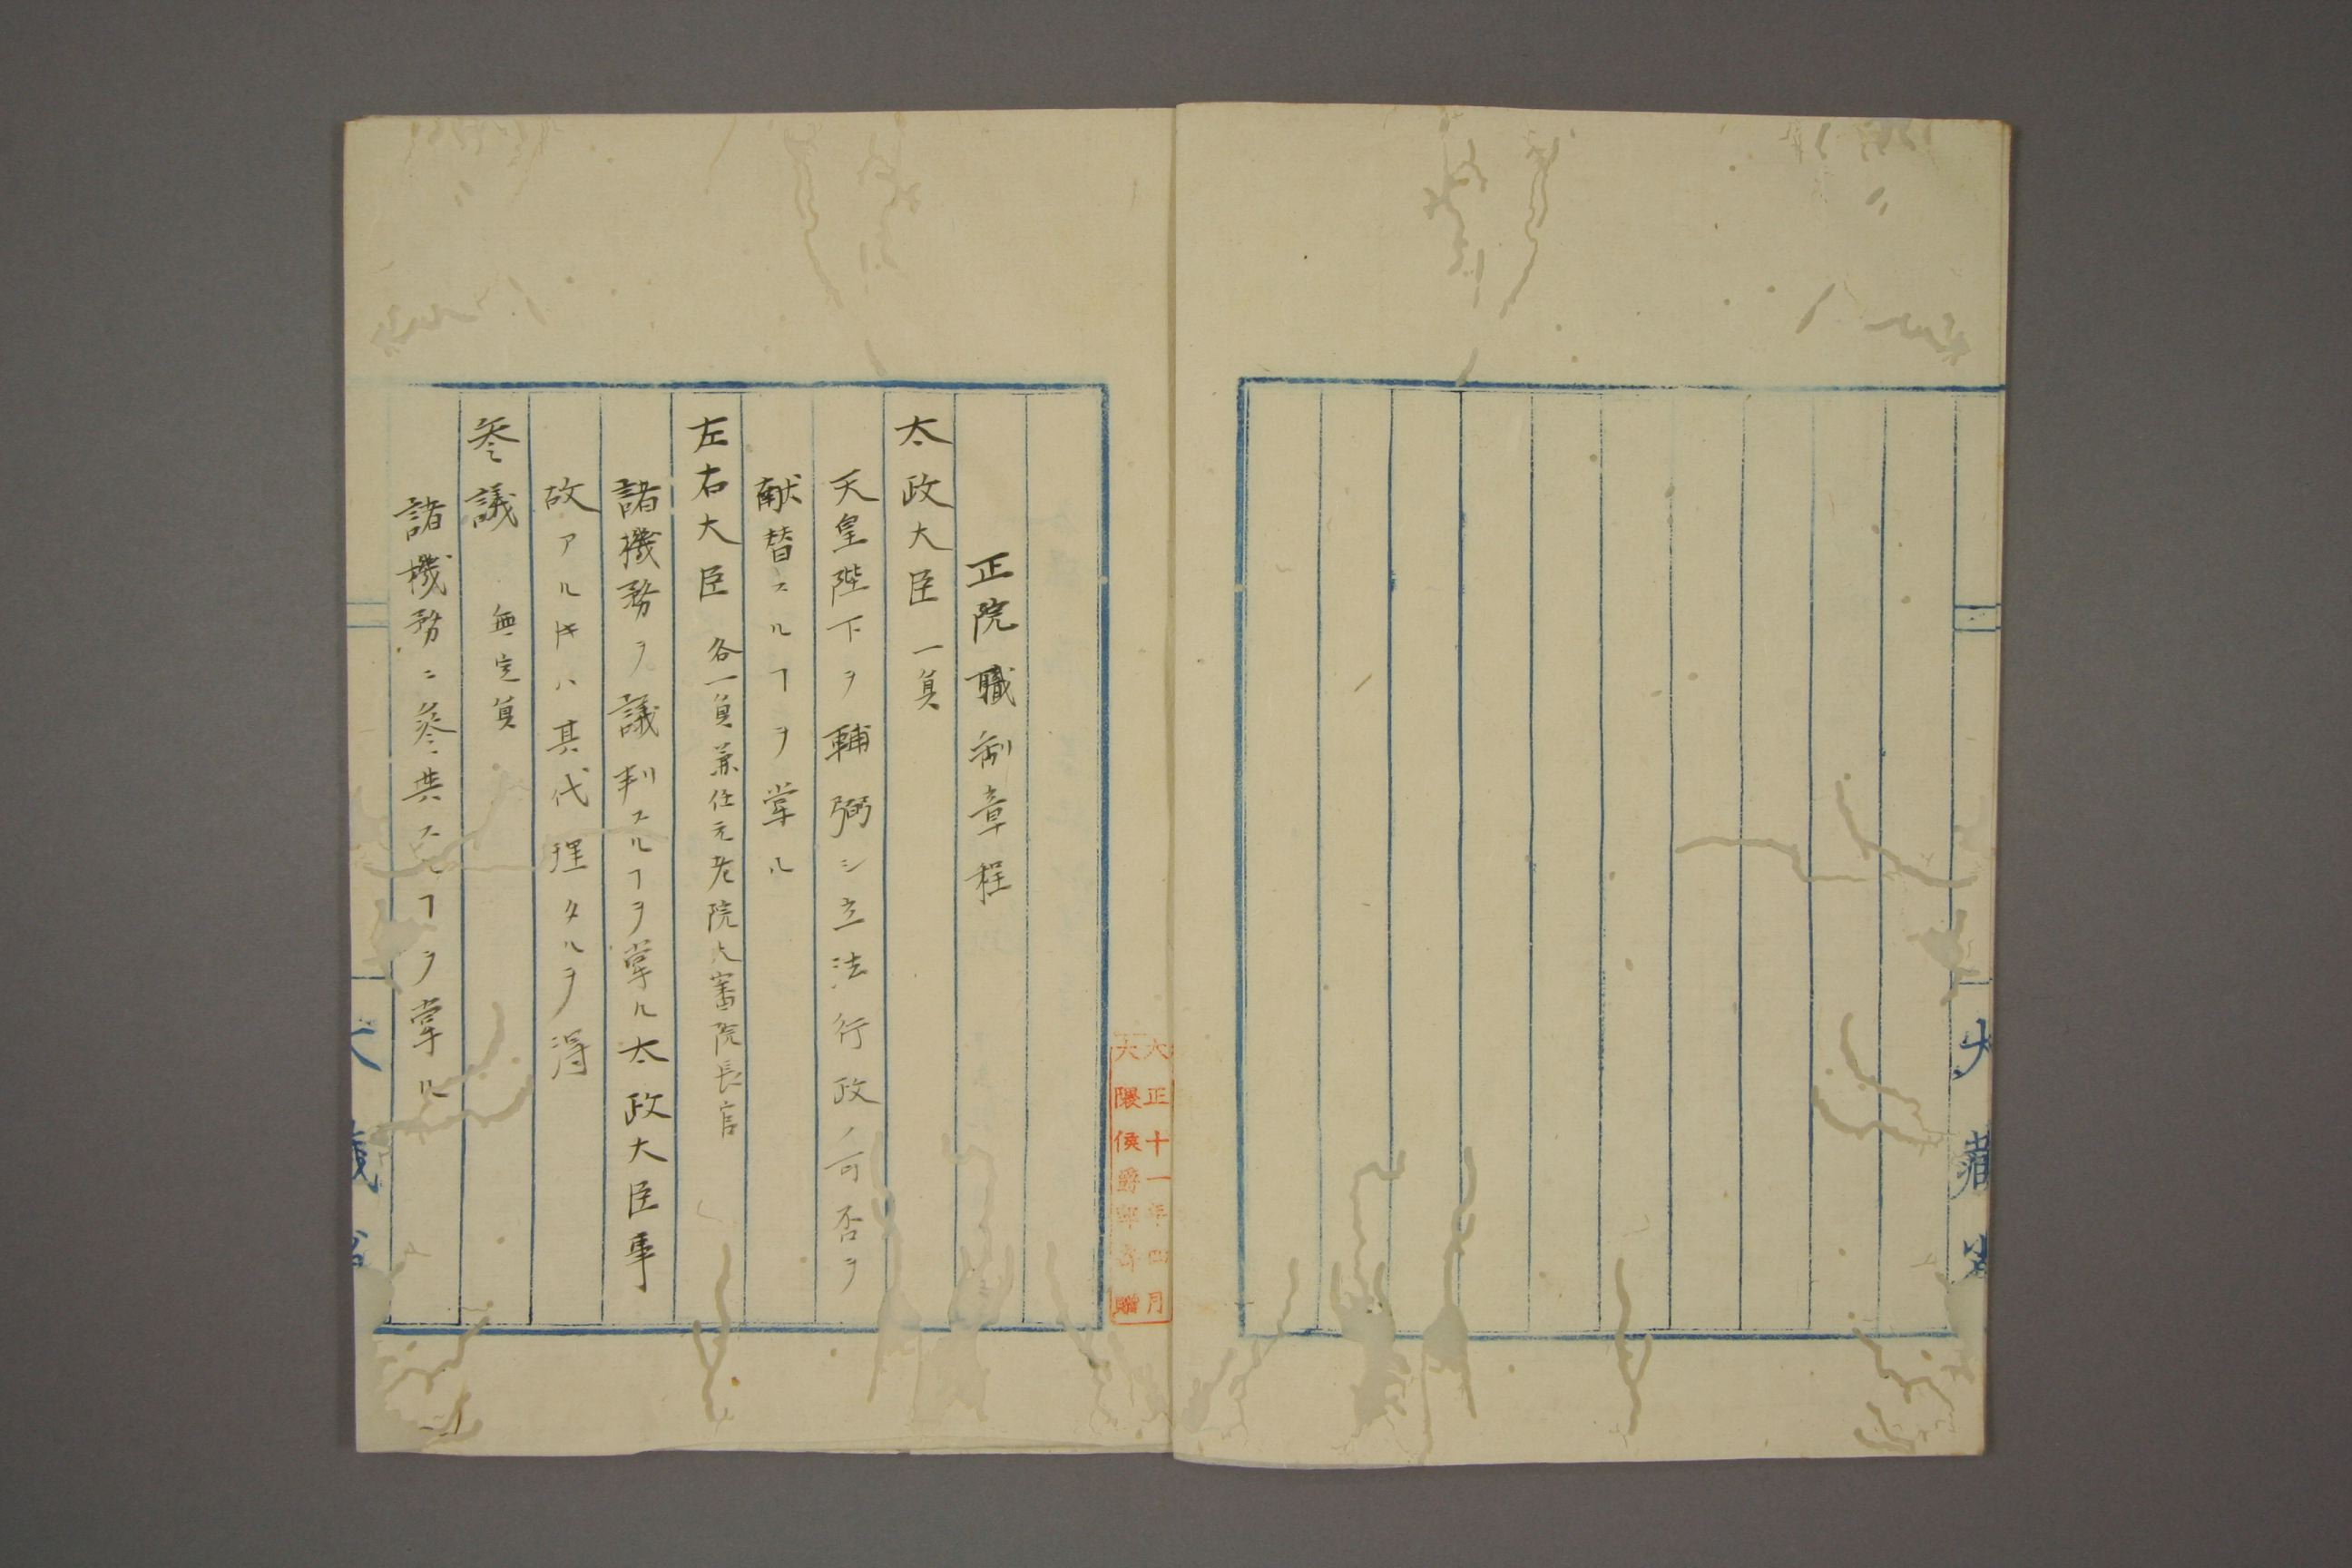 大藏省
大正十一年四月
大隈侯爵邸寄贈
正院職制章程
太政大臣 一員
天皇陛下ヲ輔弼シ立法行政ノ可否ヲ
献替スルヿヲ掌ル
左右大臣 各一員兼任元老院大審院長官
諸機務ヲ議判スルヿヲ掌ル太政大臣事
故アルキハ其代理タルヲ得
參議 無定員
諸機務ニ參共スルヿヲ掌ル